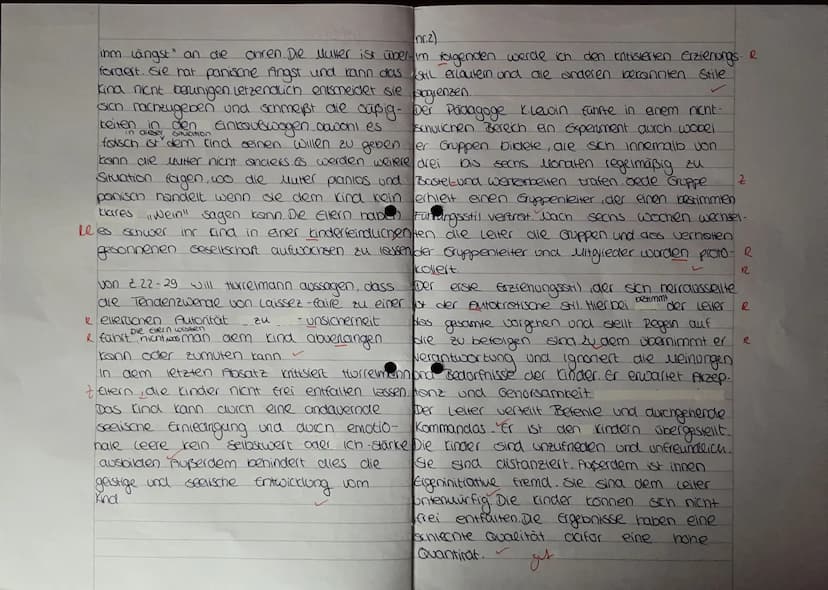 ihm längst" an die Ohren. Die Mutter ist über-
fordert. Sie hat panische Angst und kann das
Kind nicht beruhigen. Letzendlich entscheidet sie
sich nachzugeben und schmeißt die Süßig-
keiten in den Einkaufswagen. Obwohl es
in dieser Situation
falsch ist dem Kind seinen Willen zu geben
kann die Mutter nicht anders. Es werden weitere
Situation folgen, wo die Mutter planlos und
panisch handelt wenn sie dem Kind kein
klares "Nein" sagen kann. Die Eltern haben
LR es schwer ihr Kind in einer kinderfeindlichen
gesonnenen Gesellschaft aufwachsen zu lassen
Von Z. 22-29 will Hurrelmann aussagen, dass
die Tendenzwende von Laissez-faire zu einer
R elterlichen Autorität zu unsicherheit
Die Eltern wissen
R fährt nicht was man dem Kind abverlangen
kann oder zumuten kann.
In dem letzten Absatz kritisiert Hurrelmann
Z Eltern, die Kinder nicht frei entfalten lassen.
Das Kind kann durch eine andauernde
seelische Erniedrigung und durch emotio-
nale Leere kein Selbstwert oder Ich-Stärke
ausbilden. Außerdem behindert dies die
geistige und seelische Entwicklung vom
Kind
Nr. 2)
Im folgenden werde ich den kritisierten Erziehungs- R
stil erläutern und die anderen bekannten Stile
Der Pädagoge Klewin führte in einem nicht-
schulichen Bereich ein Experiment durch wobei
er Gruppen bildete, die sich innerhalb von
drei bis sechs Monaten regelmäßig zu
Bastel und Werkarbeiten trafen. Jede Gruppe Z
erhielt einen Gruppenleiter, der einen bestimmen
Führungsstil vertrat. Nach sechs Wochen wechsel-
ten die Leiter die Gruppen und das verhalten
der Gruppenleiter und Mitglieder worden proto- R
koliert. R
Der erste Erziehungsstil, der sich herrausstellte
bestimmt
ist der Autokratische Stil. Hierbei der Leiter R
das gesamte vorgehen und stellt Regeln auf
die zu befolgen sind. Zu dem übernimmt er R
Verantwortung und ignoriert die Meinungen
und Bedürfnisse der Kinder. Er erwartet Akzep-
tanz und Gehorsamkeit.
Der Leiter verteilt Befehle und durchgehende
Kommandos. Er ist den Kindern übergestellt.
Die Kinder sind unzufrieden und unfreundlich.
Sie sind distanziert. Außerdem ist ihnen
Eigeninitiative fremd. Sie sind dem Leiter
unterwürfig. Die Kinder können sich nicht
frei entfalten. Die Ergebnisse haben eine
schlechte Qualität dafür eine hohe
Quantität. gut